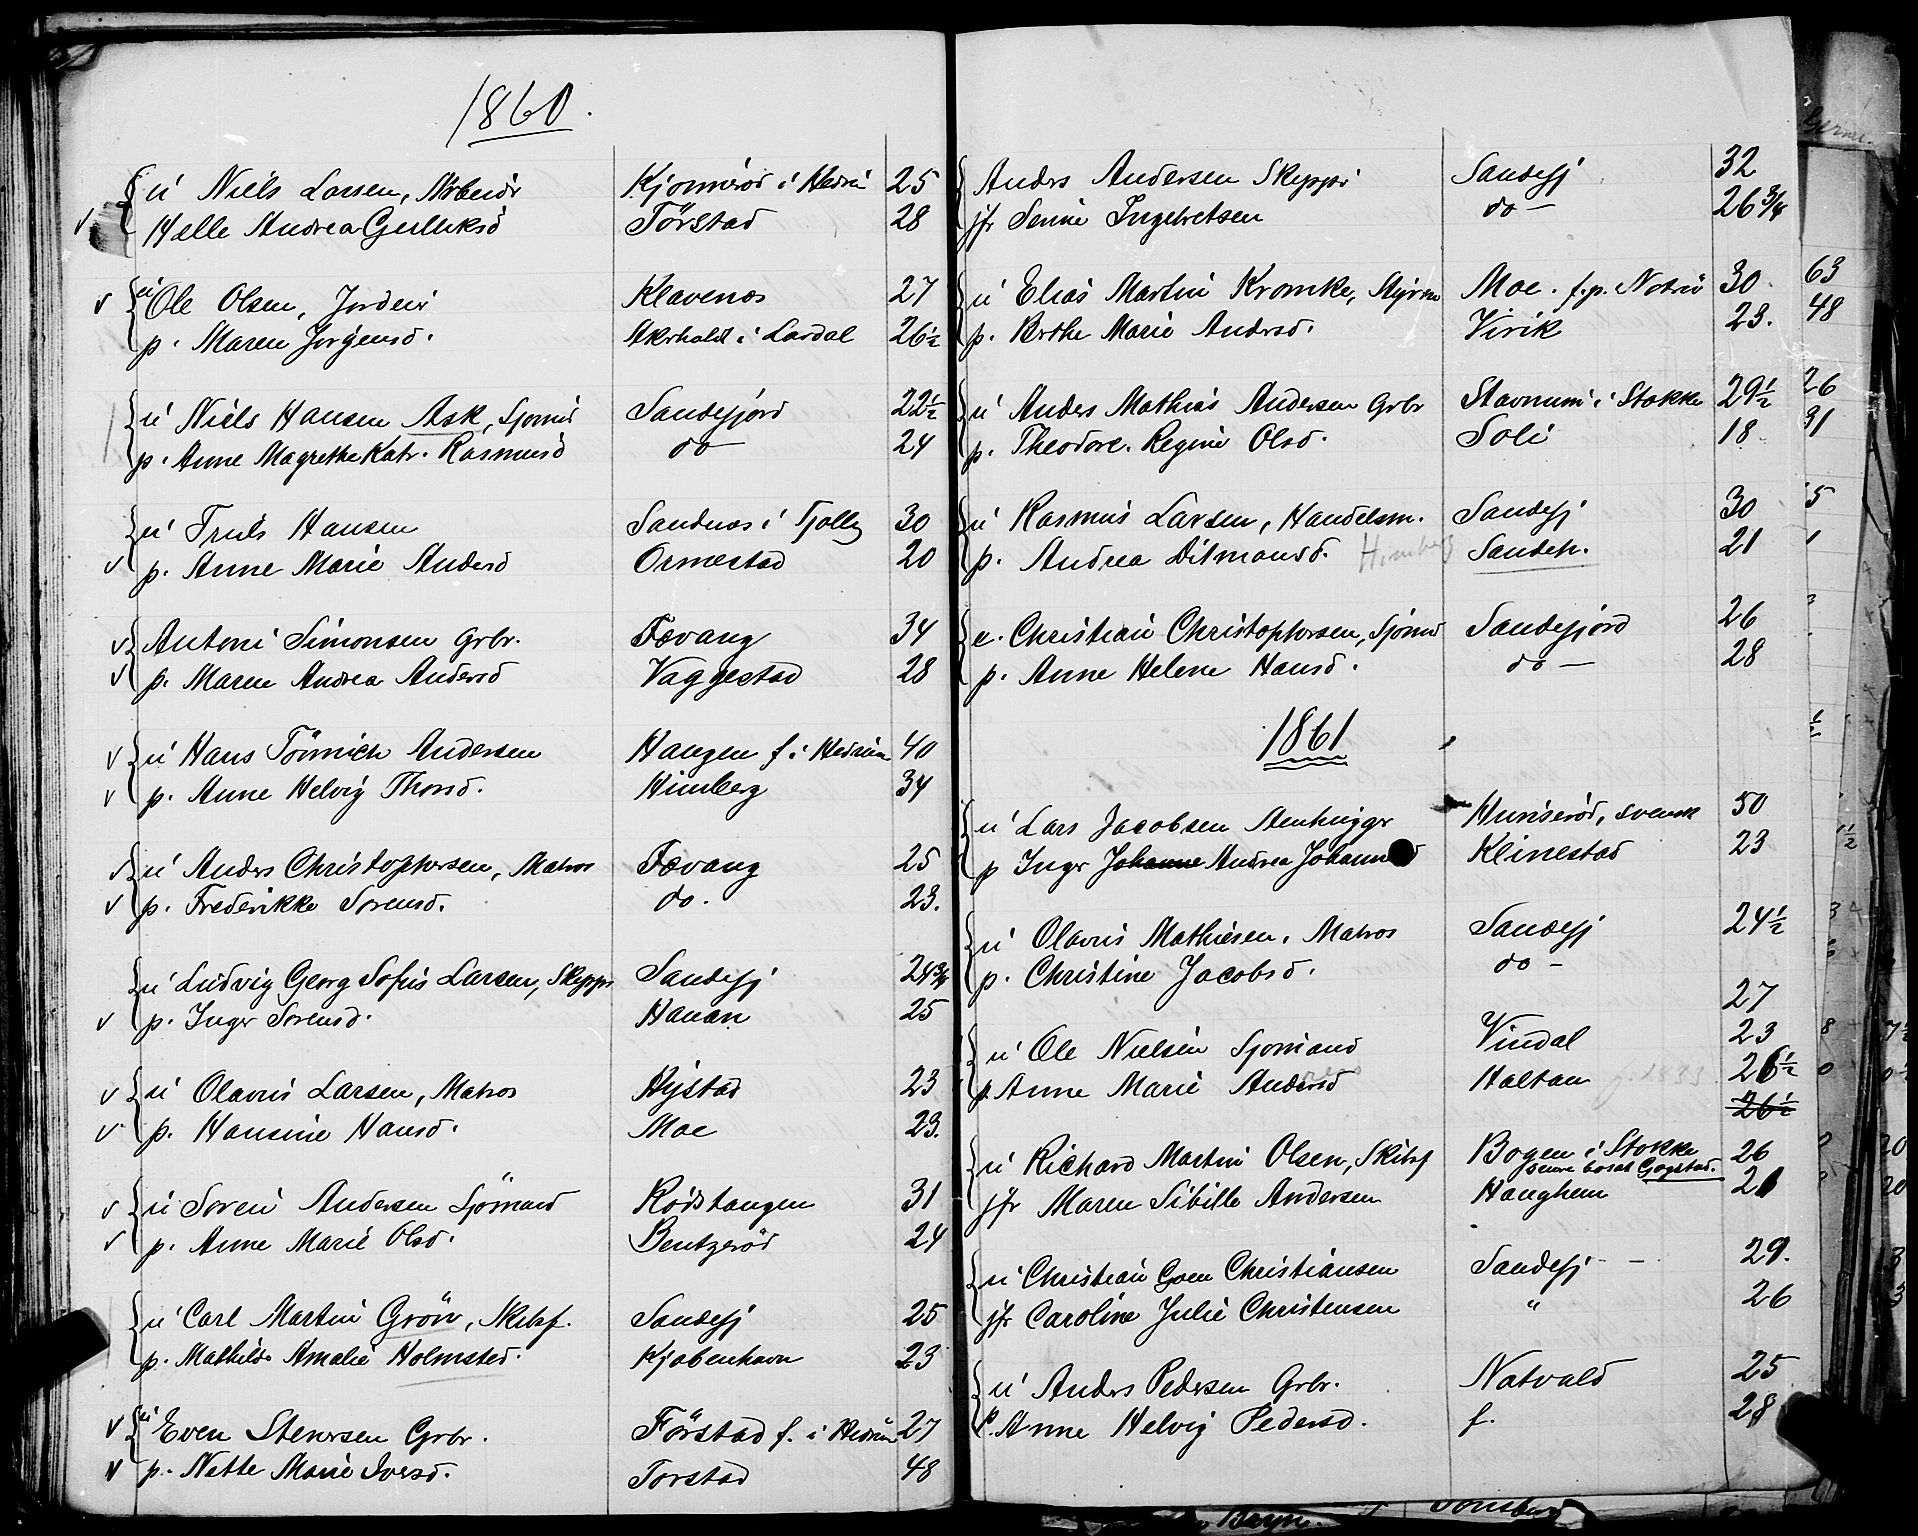 1860.
u Niels Larsen, Arbeidr Kjønnerød i Hedru 25
Helle Andrea Gulliksd Törstad 28
u Ole Olsen, Jordeir Klavenes 27
p. Maren Jorgensd. Akrholdt i Lardal 26½
u Niels Hansen Ask, Sjomd Sandefjord 22½
p. Anne Magrethe Katr. Rasmusd do 24
u Truls Hansen Sandnæs i Tjolling 30
p. Anne Marie Andersd Ormestad 20
Antoni Simonsen Grbr. Fævang 34
p. Maren Andrea Andersd Vaggestad 28
u Hans Tönnich Andersen Haugen f. i Hedrum 40
p. Anne Helvig Thorsd. Himberg 34
u Anders Christophersen, Matros Fævang 25
p. Frederikke Sorensd. do. 23.
u Ludvig Georg Sofus Larsen, Skyppr Sandefj 24¾
p. Inger Sorensd. Hauan 25
u Olavus Larsen, Matros Nystad 23
p. Hansine Hansd. Moe 23.
u Soren Andersen Sjömand Rödstangen 31
p. Anne Marie Olsd. Bentzeröd 24
u Carl Martin Grön, Skibsf. Sandefj 25
p. Mathilde Amalie Holmsted. Kjøbenhavn 23
u Even Stenersen Grbr. Förstad f. i Hedrum 27
p. Nette Marie Iversd. Torstad 48
Anders Andersen Skyppr Sandefj 32
jfr Serine Ingebretsen do — 26¾
u Elias Martin Kromke, Styrm Moe. f.p. Notrö 30
p. Berthe Marie Andersd. Virik 23.
u Anders Mathias Andersen Grbr Stavnum i Stokke 29½
p. Theodore Regine Olsd. Soli 18
u Rasmus Larsen, Handelsm. Sandefj 30
p. Andrea Ditmansd. Himberg Sandeh. 21
e. Christian Christophersen, Sjömd Sandefjord 26
p. Anne Helene Hansd. do — 28
1861
u Lars Jacobsen Stenhugger Hunserød, svensk 50
p Inger Johanne Andrea Johannsd Klinestad 23
u Olavus Mathisen, Matros Sandefj 24½
p. Christine Jacobsd. do —
27
u Ole Nielsen Sjomand Vindal 23
p. Anne Marie Andersd Haltan g. 1833 26½
26½
u Richard Martin Olsen, Skibsf Bogen i Stokke 26
senere bosat Gogstad.
jfr Maren Sibille Andersen Haughem 21
u Christian Goen Christiansen Sandefj — 29.
jfr Caroline Julie Christensen " 26
u Anders Pedersen Grbr. Natvald 25
p. Anne Helvig Pedersd. f. 28
63
48
26
31